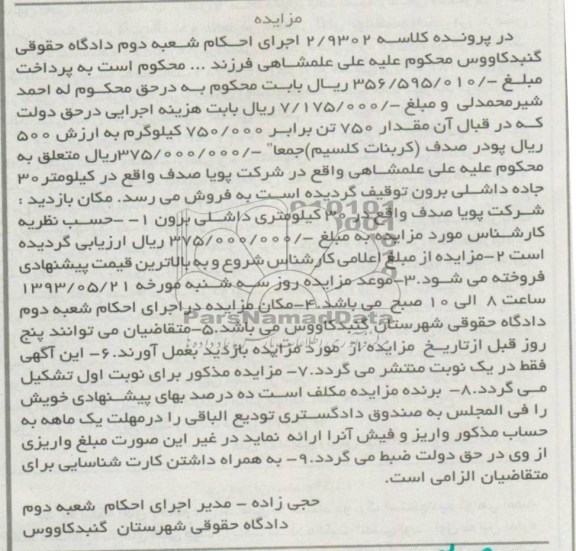 مزایده
در پرونده کلاسه ۲/۹۳۰۲ اجرای احکام شعبه دوم دادگاه حقوقی
گنبدکاووس محکوم علیه علی علمشاهی فرزند ... محکوم است به پرداخت
مبلغ -/۳۵۶/۵۹۵/۰۱۰ ریال بابت محکوم به درحق محکوم له احمد
شیرمحمدلی و مبلغ -/۷/۱۷۵/۰۰۰ ریال بابت هزینه اجرایی درحق دولت
که در قبال آن مقدار ۷۵۰ تن برابر ۷۵۰/۰۰۰ کیلوگرم به ارزش ۵۰۰
ریال پودر صدف (کربنات کلسیم)جمعا" -/۳۷۵/۰۰۰/۰۰۰ریال متعلق به
محکوم علیه علی علمشاهی واقع در شرکت پویا صدف واقع در کیلومتر۳۰
جاده داشلی برون توقیف گردیده است به فروش می رسد. مکان بازدید :
شرکت پویا صدف واقع در ۳۰ کیلومتری داشلی برون ۱- -حسب نظریه
کارشناس مورد مزایده به مبلغ -/۳۷۵/۰۰۰/۰۰۰ ریال ارزیابی گردیده
است ۲-مزایده از مبلغ اعلامی کارشناس شروع و به بالاترین قیمت پیشنهادی
فروخته می شود.۳-موعد مزایده روز سه شنبه مورخه ۱۳۹۳/۰۵/۲۱
ساعت ۸ الی ۱۰ صبح می باشد.۴-مکان مزایده در اجرای احکام شعبه دوم
دادگاه حقوقی شهرستان گنبدکاووس می باشد.۵-متقاضیان می توانند پنج
روز قبل ازتاریخ مزایده از مورد مزایده بازدید بعمل آورند.۶- این آگهی
فقط در یک نوبت منتشر می گردد.۷- مزایده مذکور برای نوبت اول تشکیل
می گردد.۸- برنده مزایده مکلف است ده درصد بهای پیشنهادی خویش
را فی المجلس به صندوق دادگستری تودیع الباقی را درمهلت یک ماهه به
حساب مذکور واریز و فیش آنرا ارائه نماید در غیر این صورت مبلغ واریزی
از وی در حق دولت ضبط می گردد.۹- به همراه داشتن کارت شناسایی برای
متقاضیان الزامی است.
حجی زاده - مدیر اجرای احکام شعبه دوم
دادگاه حقوقی شهرستان گنبدکاووس
ParsNamadData